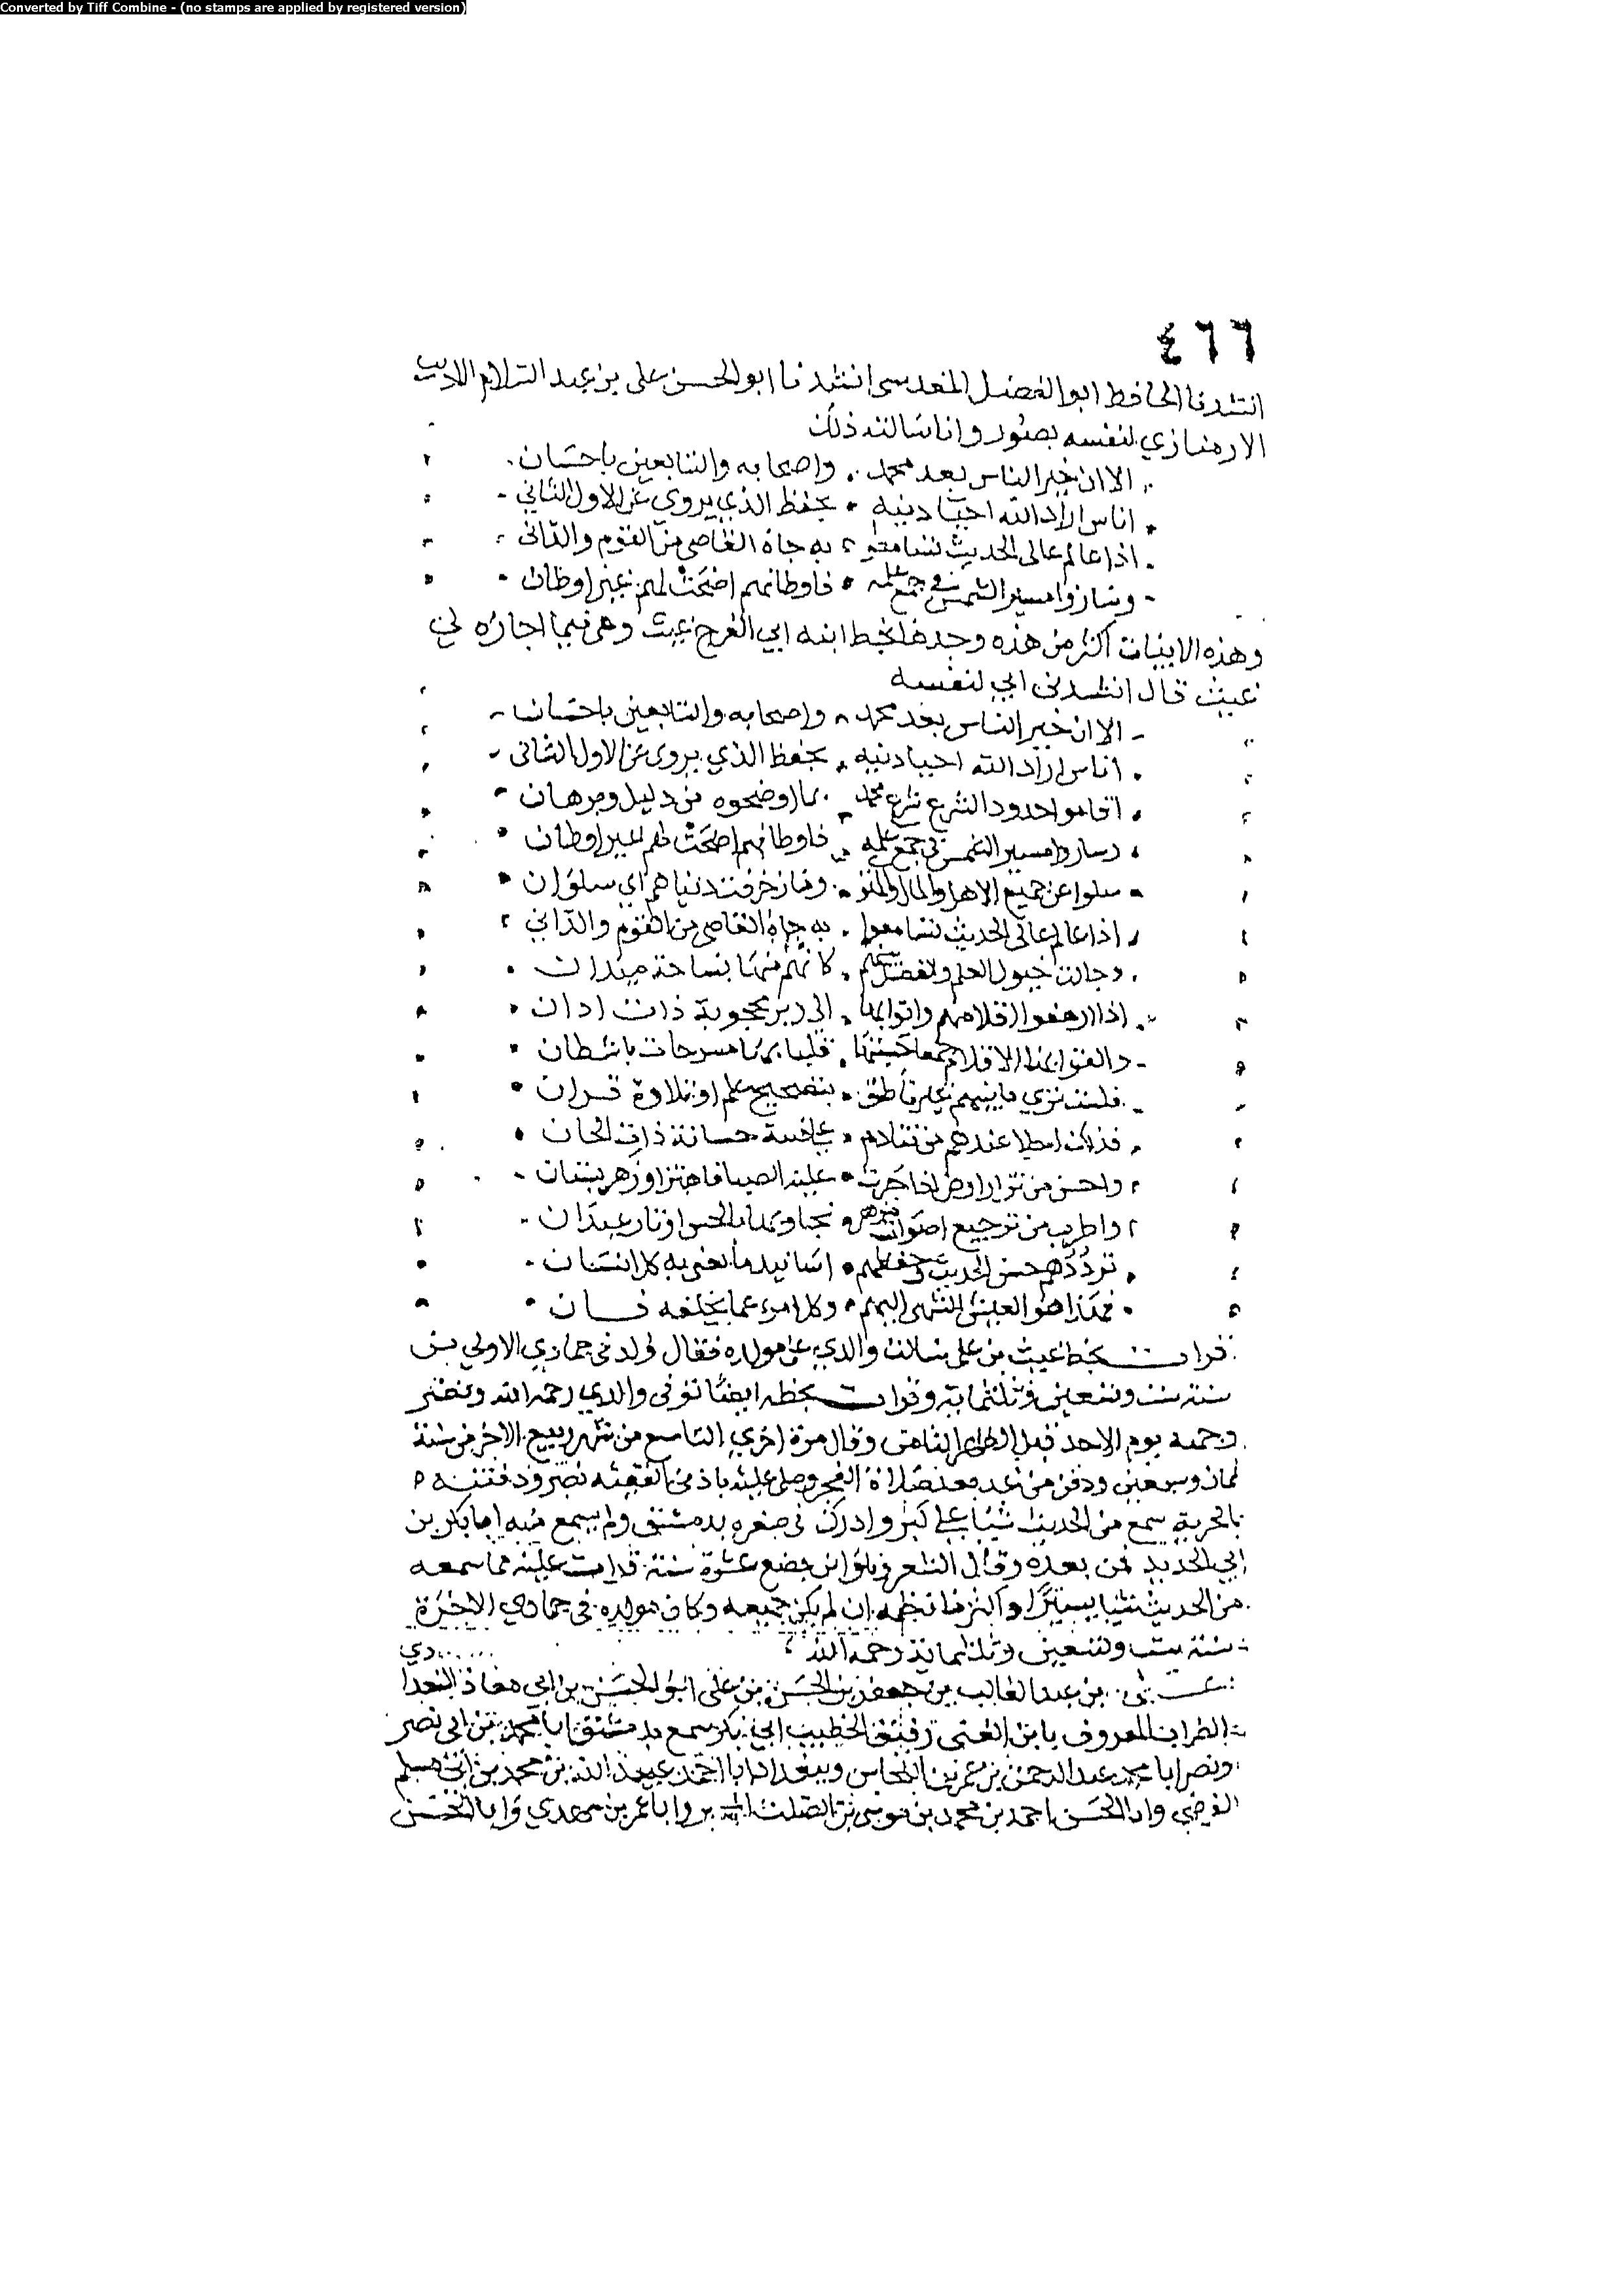 Converted by Tiff Combine - (no stamps are applied by registered version)
٤٦٦
انشدنا الحافظ ابو الفضل المقدسي انشدنا ابو الحسن علي بن عبد السلام الاديب
الارمنازي لنفسه بصور وانا سالته ذلك
الا ان خير الناس بعد محمد واصحابه والتابعين باحسان
اناس اراد الله احيا دينه بحفظ الذي يروي عن الاول الثاني
اذا عالم عالي الحديث تسامعوا به جاه القاصي من القوم والداني
وساروا مسير الشمس في جمع علمه فاوطانهم اضحت لهم غير اوطان
وهذه الابيات اكثر من هذه وجدها بخط ابنه ابي الفرج غيث وهي فيما اجازه لي
غيث قال انشدني ابي لنفسه
الا ان خير الناس بعد محمد واصحابه والتابعين باحسان
اناس اراد الله احيا دينه بحفظ الذي يروي عن الاول الثاني
اقاموا حدود الشرع شرع محمد بما اوضحوه من دليل وبرهان
وساروا مسير الشمس في جمع علمه فاوطانهم اضحت لهم غير اوطان
سلوا عن جميع الاهل والمال والمنى وما زخرفت دنياهم اي سلوان
اذا عالم عالي الحديث تسامعوا به جاه القاصي من القوم والداني
وجالت خيول العلم والفضل بينهم كانهم منها بساحة ميدان
اذا ارهفوا اقلامهم واتوا بها الى دبر محجوبة ذات ادان
والقوا بهذا الاقلام جمعا حسبتها قليبا بمتا مسرحات باشطان
فلست ترى ما بينهم غير ناطق بتصحيح علم او تلاوة قران
فذلك احلا عندهم من تنادم على قينة حسانة ذات الحان
واحسن من نوار روض اذا جرت عليه الصبا فاهتز او زهر بستان
واطرب من ترجيع اصوات مزهر وتجاوبها بالحس اوتار عيدان
تردد هم حسن الحديث وحفظهم اسانيد ما يغنى به كل انسان
فهذا هو العيش الشهي اليهم وكل امرء عما يخلفه فان
قرات بخط غيث بن علي سالت والدي عن مولده فقال ولد في جمادي الاولى من
سنة ست وتسعين وثلثماية وقرات بخطه ايضا توفي والدي رحمه الله ونضر
وجهه يوم الاحد قبل الظهر الثامن وقال مرة اخري التاسع من شهر ربيع الاخر من سنة
ثمان وسبعين ودفن من غد بعد صلاة الفجر وصلى عليه باذن الفقيه نصر ودفنته
بالحرية سمع من الحديث شيا على كبر وادرك في صغره بدمشق ولم يسمع منه ابا بكر بن
ابي الحديد فمن بعده وقال الشعر وهو ابن بضع عشرة سنة قرات عليه مما سمعه
من الحديث شيا يسيرا واكثر ما نظمه ان لم يكن جميعه وكان مولده في جمادي الاخرة
سنة ست وتسعين وثلثماية رحمه الله
علي بن عبد الغالب بن جعفر بن الحسن بن علي ابو الحسن بن ابي معاذ البغدادي
الضراب المعروف بابن القني رفيق الخطيب ابي بكر سمع بدمشق ابا محمد بن ابي نصر
وبمصر ابا محمد عبد الرحمن بن عمر بن النحاس وببغداد ابا احمد عبيد الله بن محمد بن ابي مسلم
الفرضي وابا الحسن احمد بن محمد بن موسى بن الصلت وابا عمر بن مهدي وابا الحسن